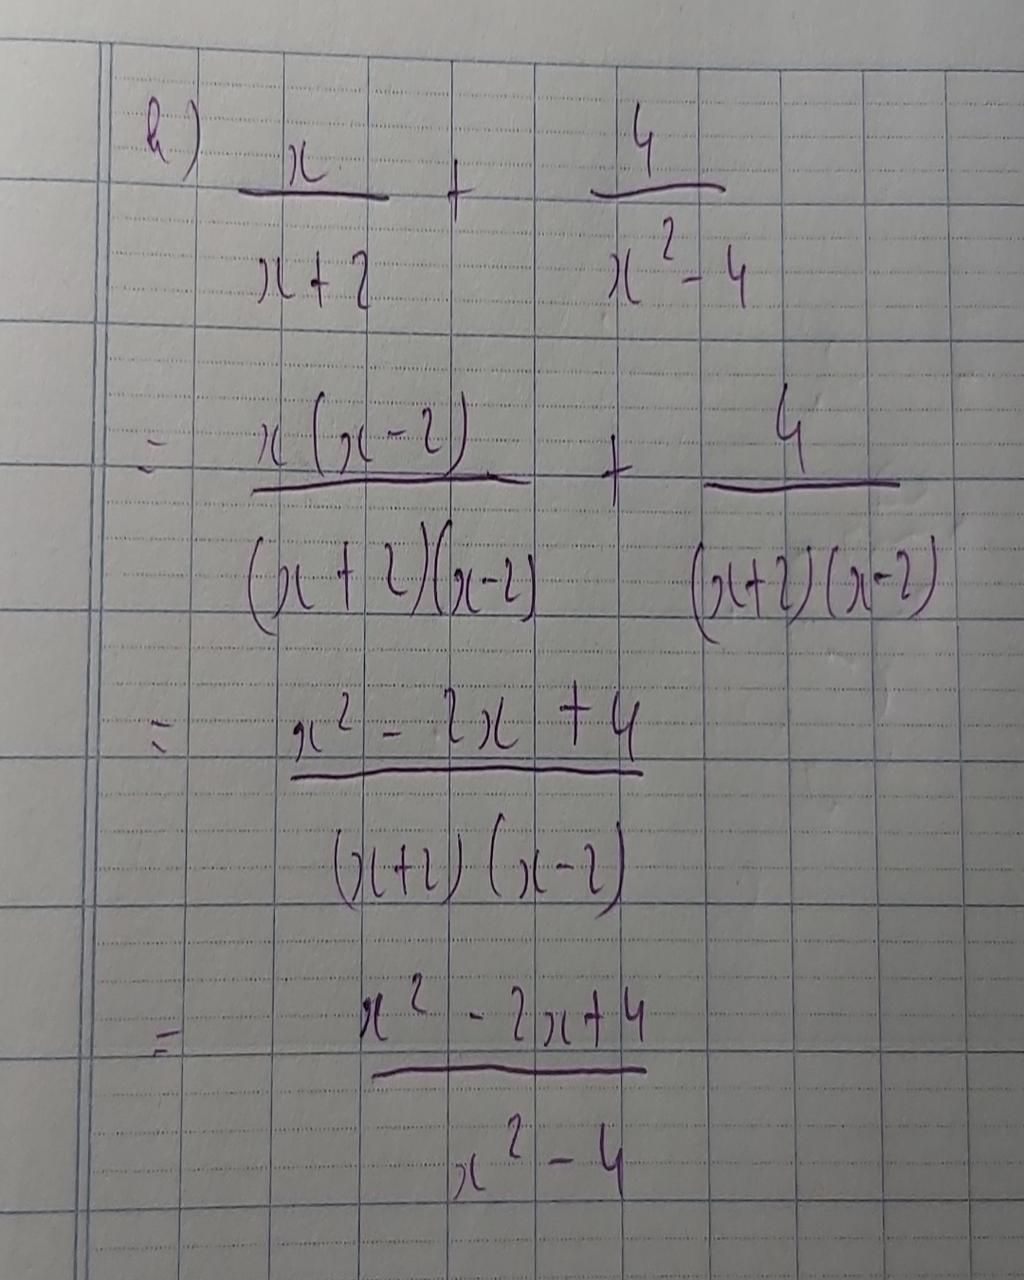 h) x/(x+2) + 4/(x² - 4)
= x(x-2)/((x+2)(x-2)) + 4/((x+2)(x-2))
= (x² - 2x + 4)/((x+2)(x-2))
= (x² - 2x + 4)/(x² - 4)